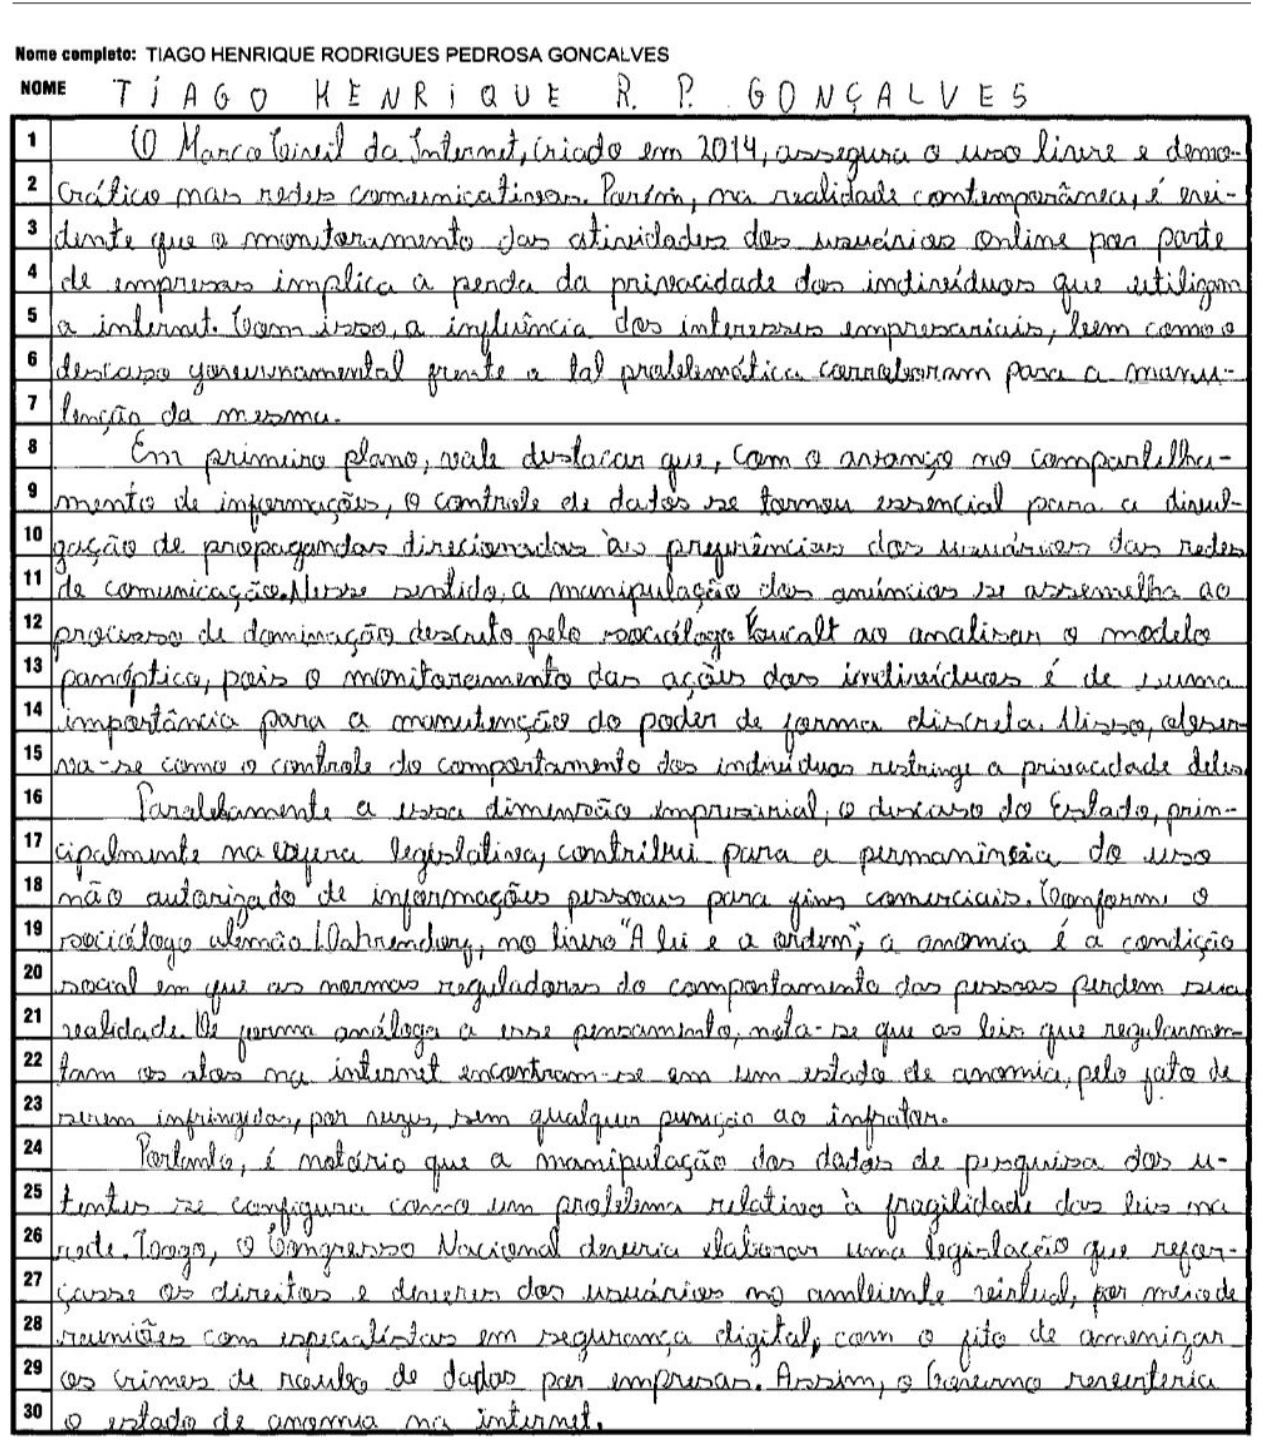 Nome completo: TIAGO HENRIQUE RODRIGUES PEDROSA GONCALVES
NOME TIAGO HENRIQUE R. P. GONÇALVES
1 O Marco Civil da Internet, criado em 2014, assegura o uso livre e demo-
2 crático nas redes comunicativas. Porém, na realidade contemporânea, é evi-
3 dente que o monitoramento das atividades dos usuários online por parte
4 de empresas implica a perda da privacidade dos indivíduos que utilizam
5 a internet. Com isso, a influência dos interesses empresariais, bem como o
6 descaso governamental frente a tal problemática corroboram para a manu-
7 tenção da mesma.
8 Em primeiro plano, vale destacar que, com o avanço no compartilha-
9 mento de informações, o controle de dados se tornou essencial para a divul-
10 gação de propagandas direcionadas às preferências dos usuários das redes
11 de comunicação. Nesse sentido, a manipulação dos anúncios se assemelha ao
12 processo de dominação descrito pelo sociólogo Foucalt ao analisar o modelo
13 panóptico, pois o monitoramento das ações dos indivíduos é de suma
14 importância para a manutenção do poder de forma discreta. Nisso, obser-
15 va-se como o controle do comportamento dos indivíduos restringe a privacidade deles.
16 Paralelamente a essa dimensão empresarial, o descaso do Estado, prin-
17 cipalmente na esfera legislativa, contribui para a permanência do uso
18 não autorizado de informações pessoais para fins comerciais. Conforme o
19 sociólogo alemão Dahrendorf, no livro "A lei e a ordem", a anomia é a condição
20 social em que as normas reguladoras do comportamento das pessoas perdem sua
21 realidade. De forma análoga a esse pensamento, nota-se que as leis que regulamen-
22 tam os atos na internet encontram-se em um estado de anomia, pelo fato de
23 serem infringidas, por vezes, sem qualquer punição ao infrator.
24 Portanto, é notório que a manipulação dos dados de pesquisa dos u-
25 tentes se configura como um problema relativo à fragilidade das leis na
26 rede. Logo, o Congresso Nacional deveria elaborar uma legislação que refor-
27 çasse os direitos e deveres dos usuários no ambiente virtual, por meio de
28 reuniões com especialistas em segurança digital, com o fito de amenizar
29 os crimes de roubo de dados por empresas. Assim, o Governo reverteria
30 o estado de anomia na internet.